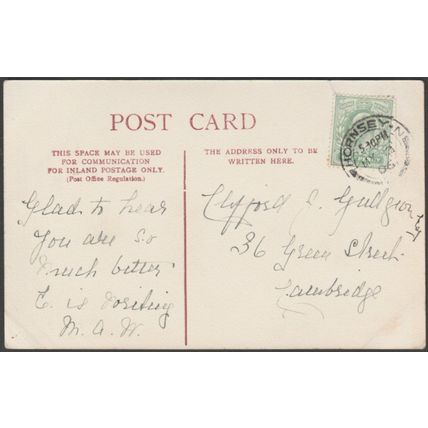 POST CARD
THIS SPACE MAY BE USED
FOR COMMUNICATION
FOR INLAND POSTAGE ONLY.
(Post Office Regulation.)
THE ADDRESS ONLY TO BE
WRITTEN HERE.
HORNSEY. N
Glad to hear
you are so
much better
E. is
M. A. W.
Clifford
36 Green Street
Cambridge